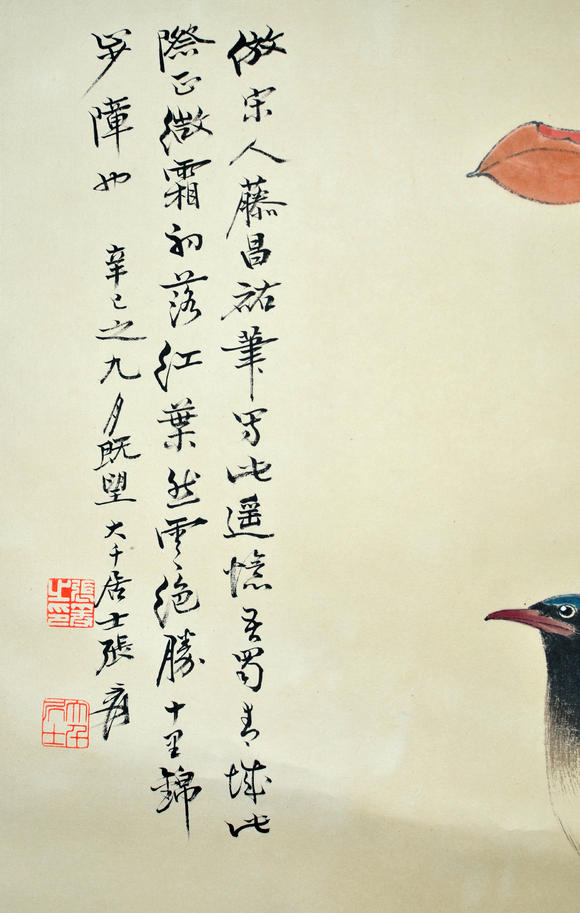 倣宋人藤昌祐筆寫此遥憶吾蜀青城此
際正微霜初落紅葉然雲絕勝十里錦
步障也 辛巳之九月既望 大千居士張爰
張爰之印
大千居士